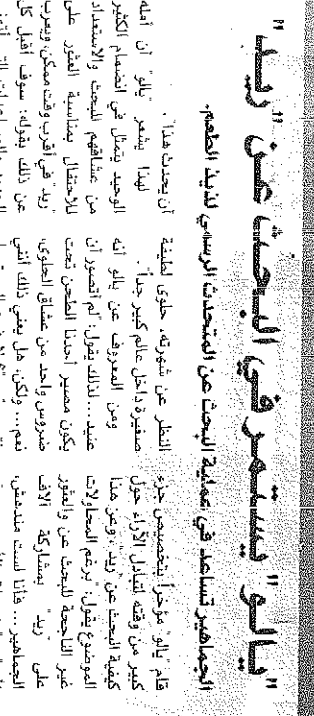 "يالو" يستمر في البحث عن "ريد"
الجماهير تساعد في عملية البحث عن المتحدث الرسمي لذيذ الطعم.
قام "يالو" مؤخراً بتخصيص جزء
كبير من وقته لتبادل الآراء حول
كيفية البحث عن "ريد". وعن هذا
الموضوع يقول: برغم المحاولات
غير الناجحة للبحث عن والعثور
على "ريد" بمشاركة آلاف
الجماهير... فأنا لست مندهش،
النظر عن شهرته، حلوى لطيفة
صغيرة داخل عالم كبير جداً".
ومن المعروف عن يالو أنه
عنيد... لذلك يقول: لم أتصور أن
يكون مصير أحدنا الطحن تحت
ضروس واحد من عشاق الحلوى،
نعم... ولكن، هل يعني ذلك أنني
أن يحدث هذا".
لهذا يشعر "يالو" أن أمله
الوحيد يتمثل في انضمام الكثير
من عشاقهم للبحث والاستعداد
للاحتفال بمناسبة العثور على
"ريد" في أقرب وقت ممكن، ويعرب
عن ذلك بقوله: سوف أقبل كل